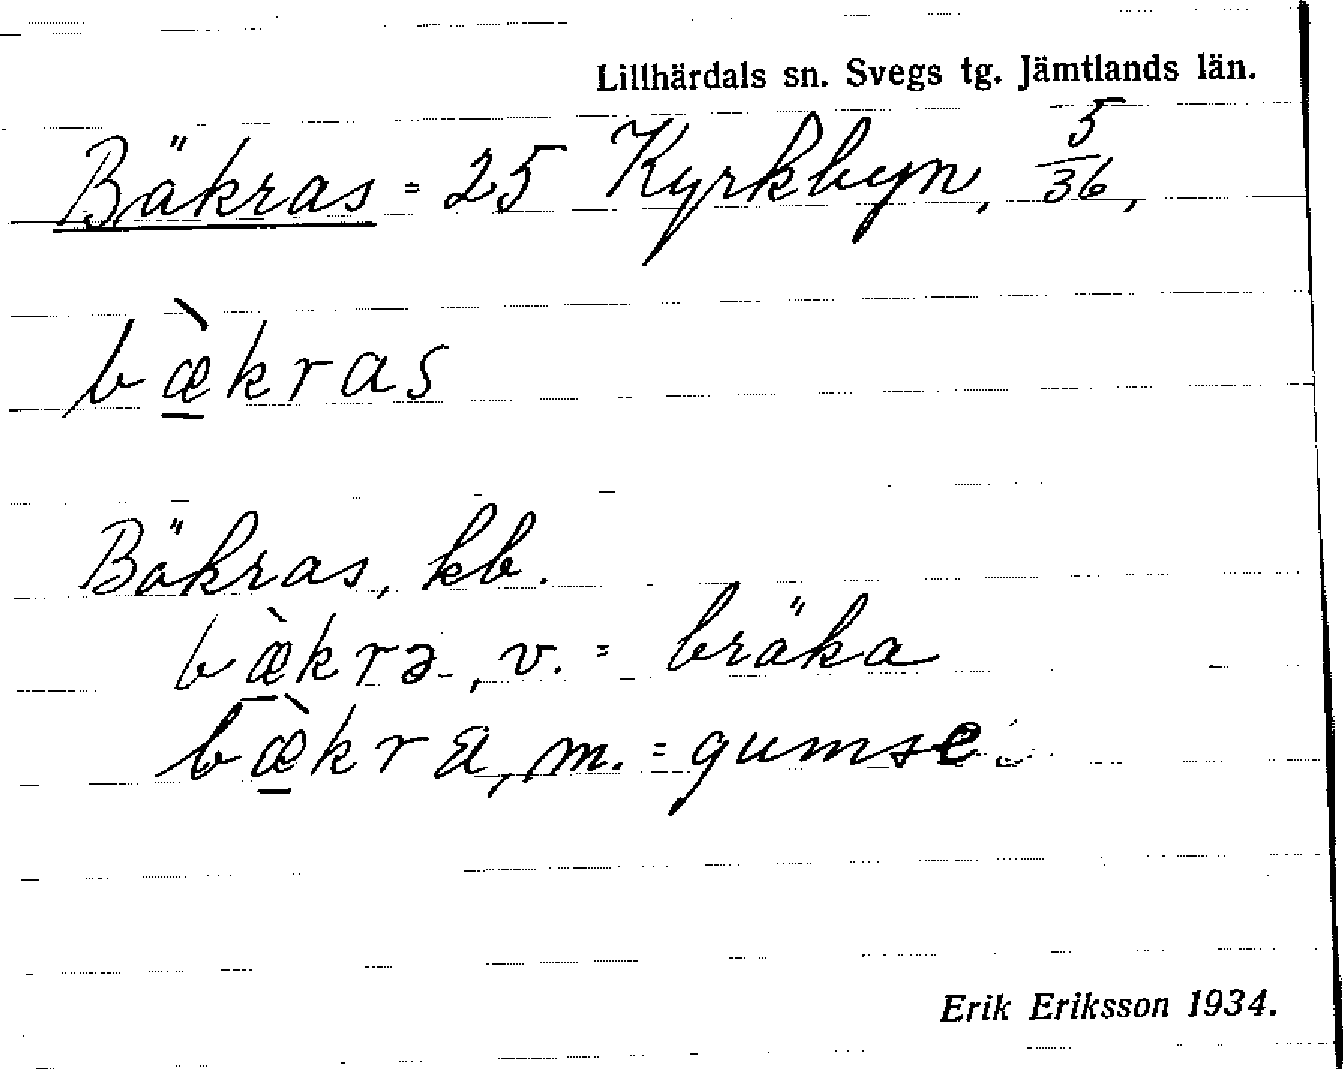 Lillhärdals sn. Svegs tg. Jämtlands län.
Bäkras = 25 Kyrkbyn, 5/36,
bæ̱̀kras
Bäkras, kb.
bæ̱̀krə, v. = bräka
bæ̱̀kra, m. = gumse.
Erik Eriksson 1934.